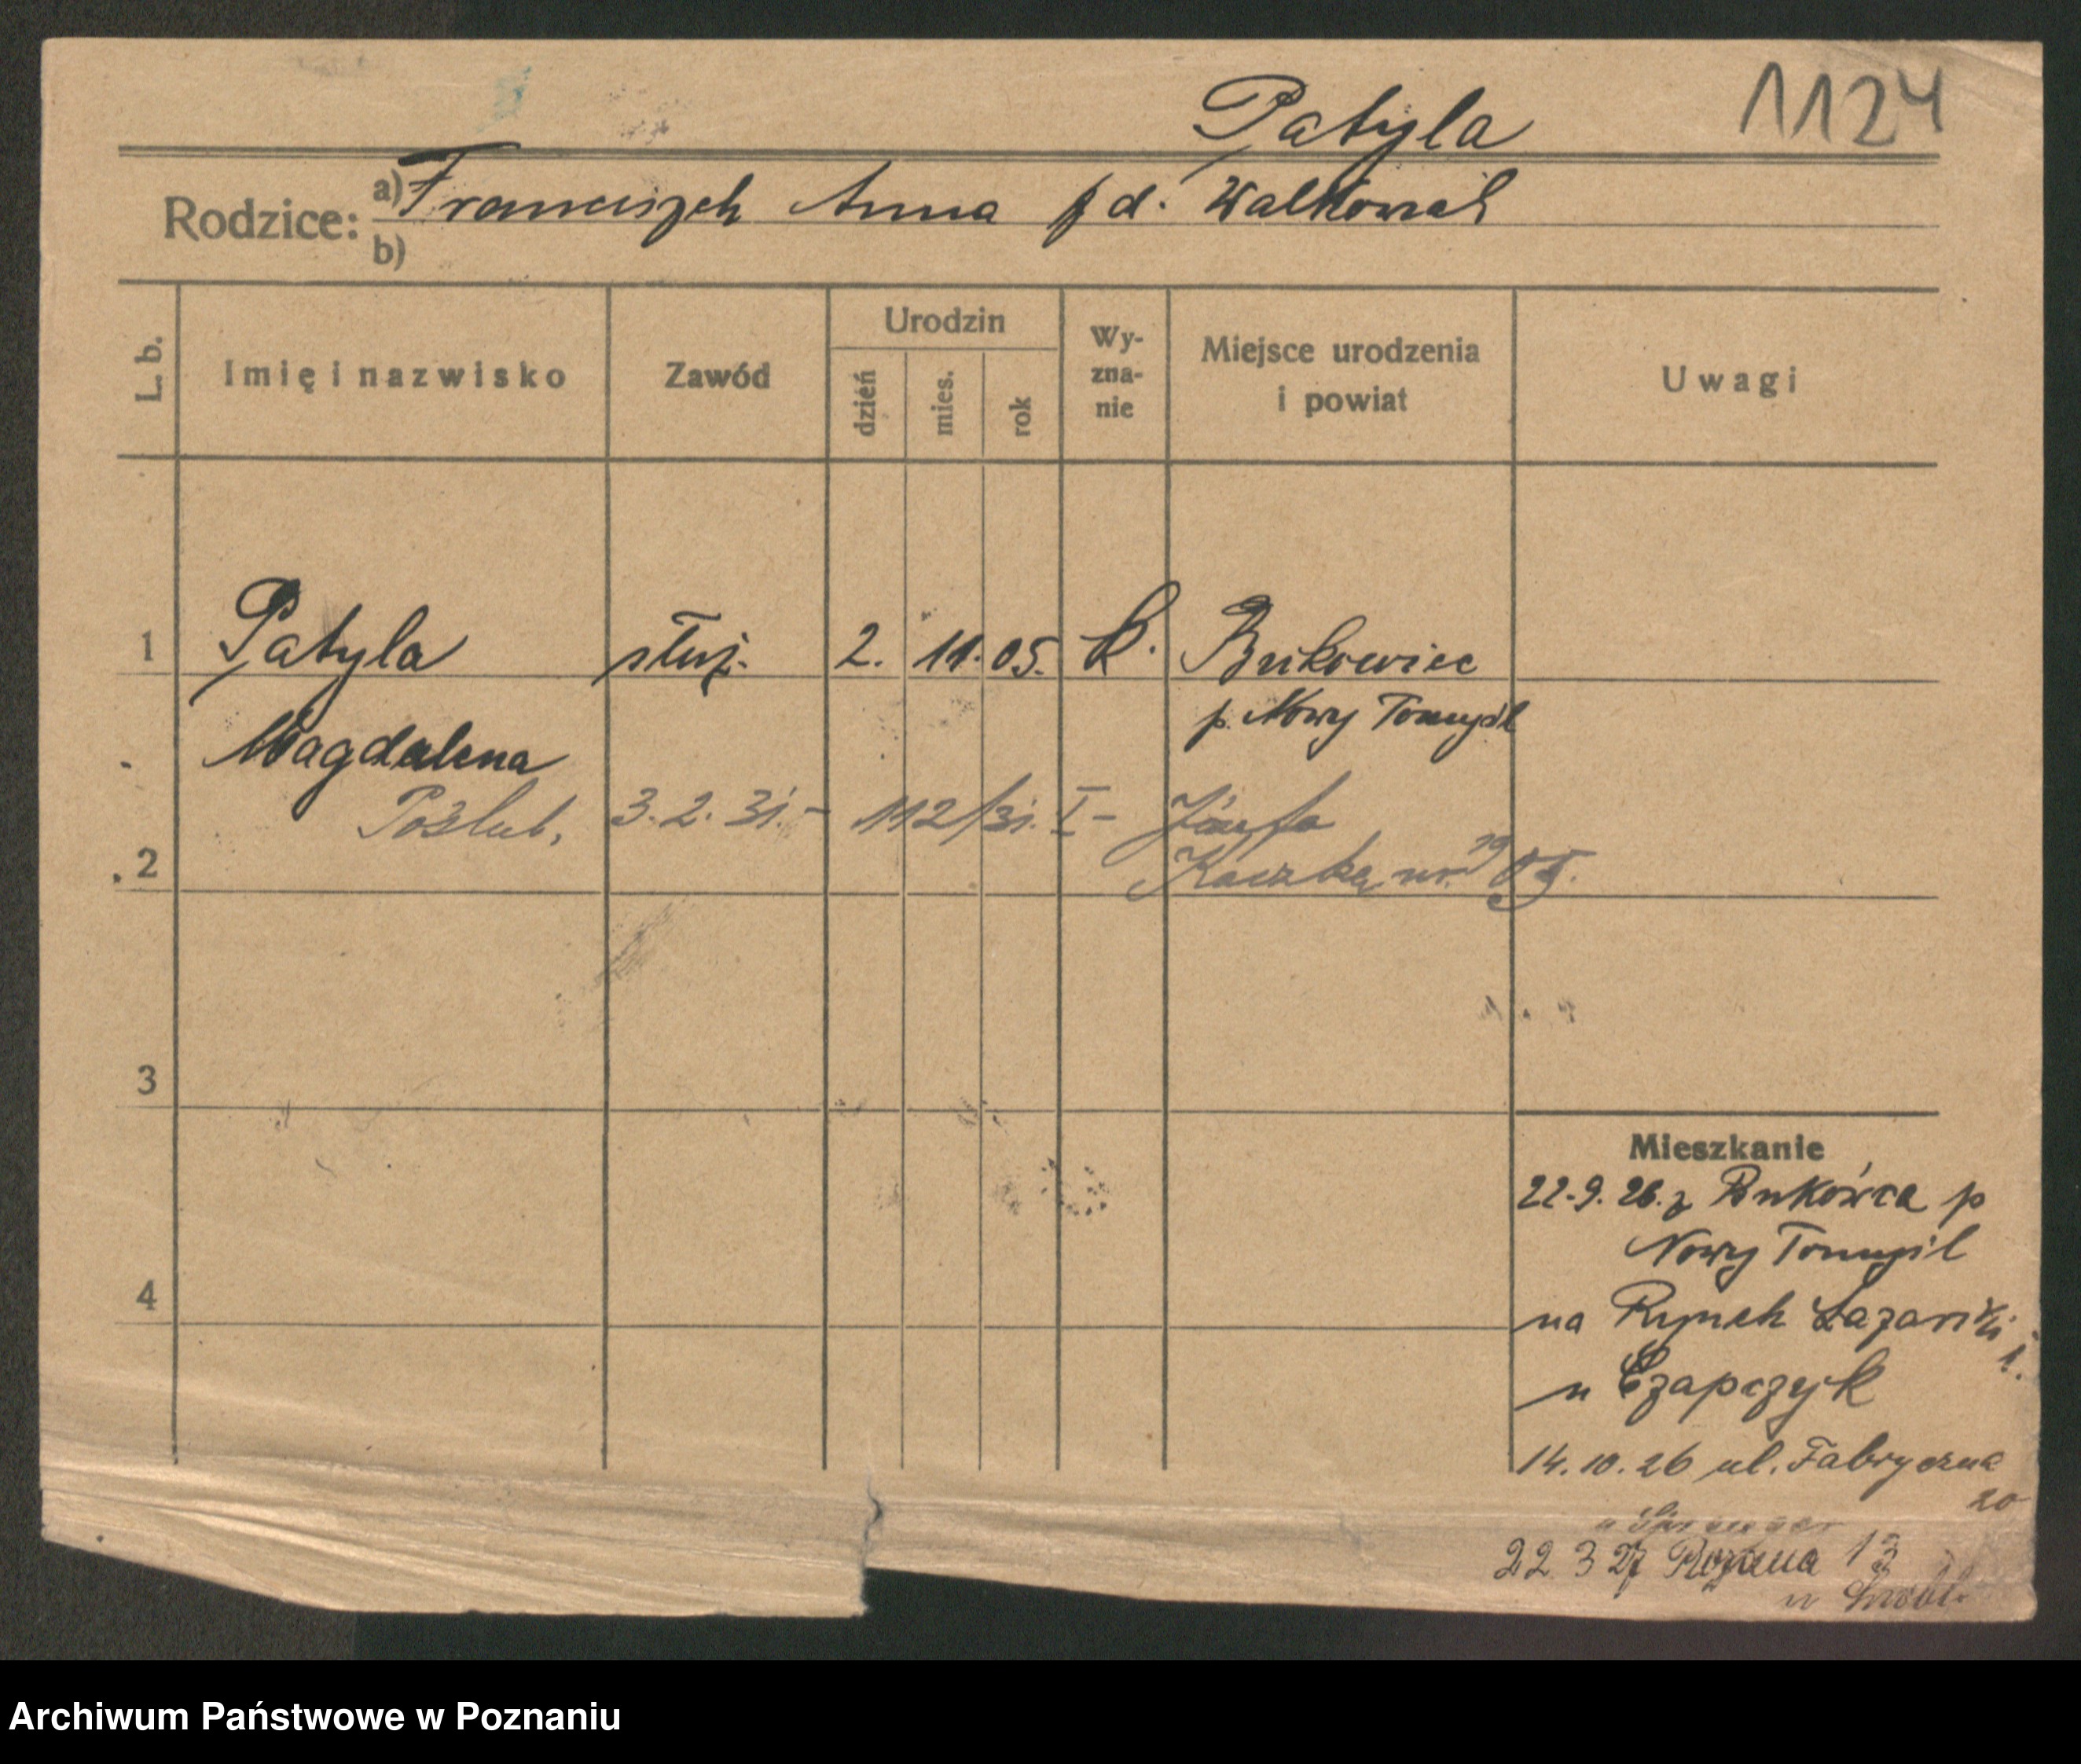 Patyla 1124
Rodzice: a) Franciszek Anna z d. Walkowiak
b)
L. b. Imię i nazwisko Zawód Urodzin dzień mies. rok Wy-zna-nie Miejsce urodzenia i powiat Uwagi
1 Patyla służ. 2. 11. 05. k. Bukowiec
p. Nowy Tomyśl
Magdalena
Poślub. 3.2.31.- 112/31. I- Józefa
2 Kaczka, ur. 19 05.
3
Mieszkanie
22.9.26. z Bukówca p
Nowy Tomyśl
4
na Rynek Łazarski
1.
u Czapczyk
14.10.26 ul. Fabryczna
20
22 3 27 Rożana 13
Archiwum Państwowe w Poznaniu